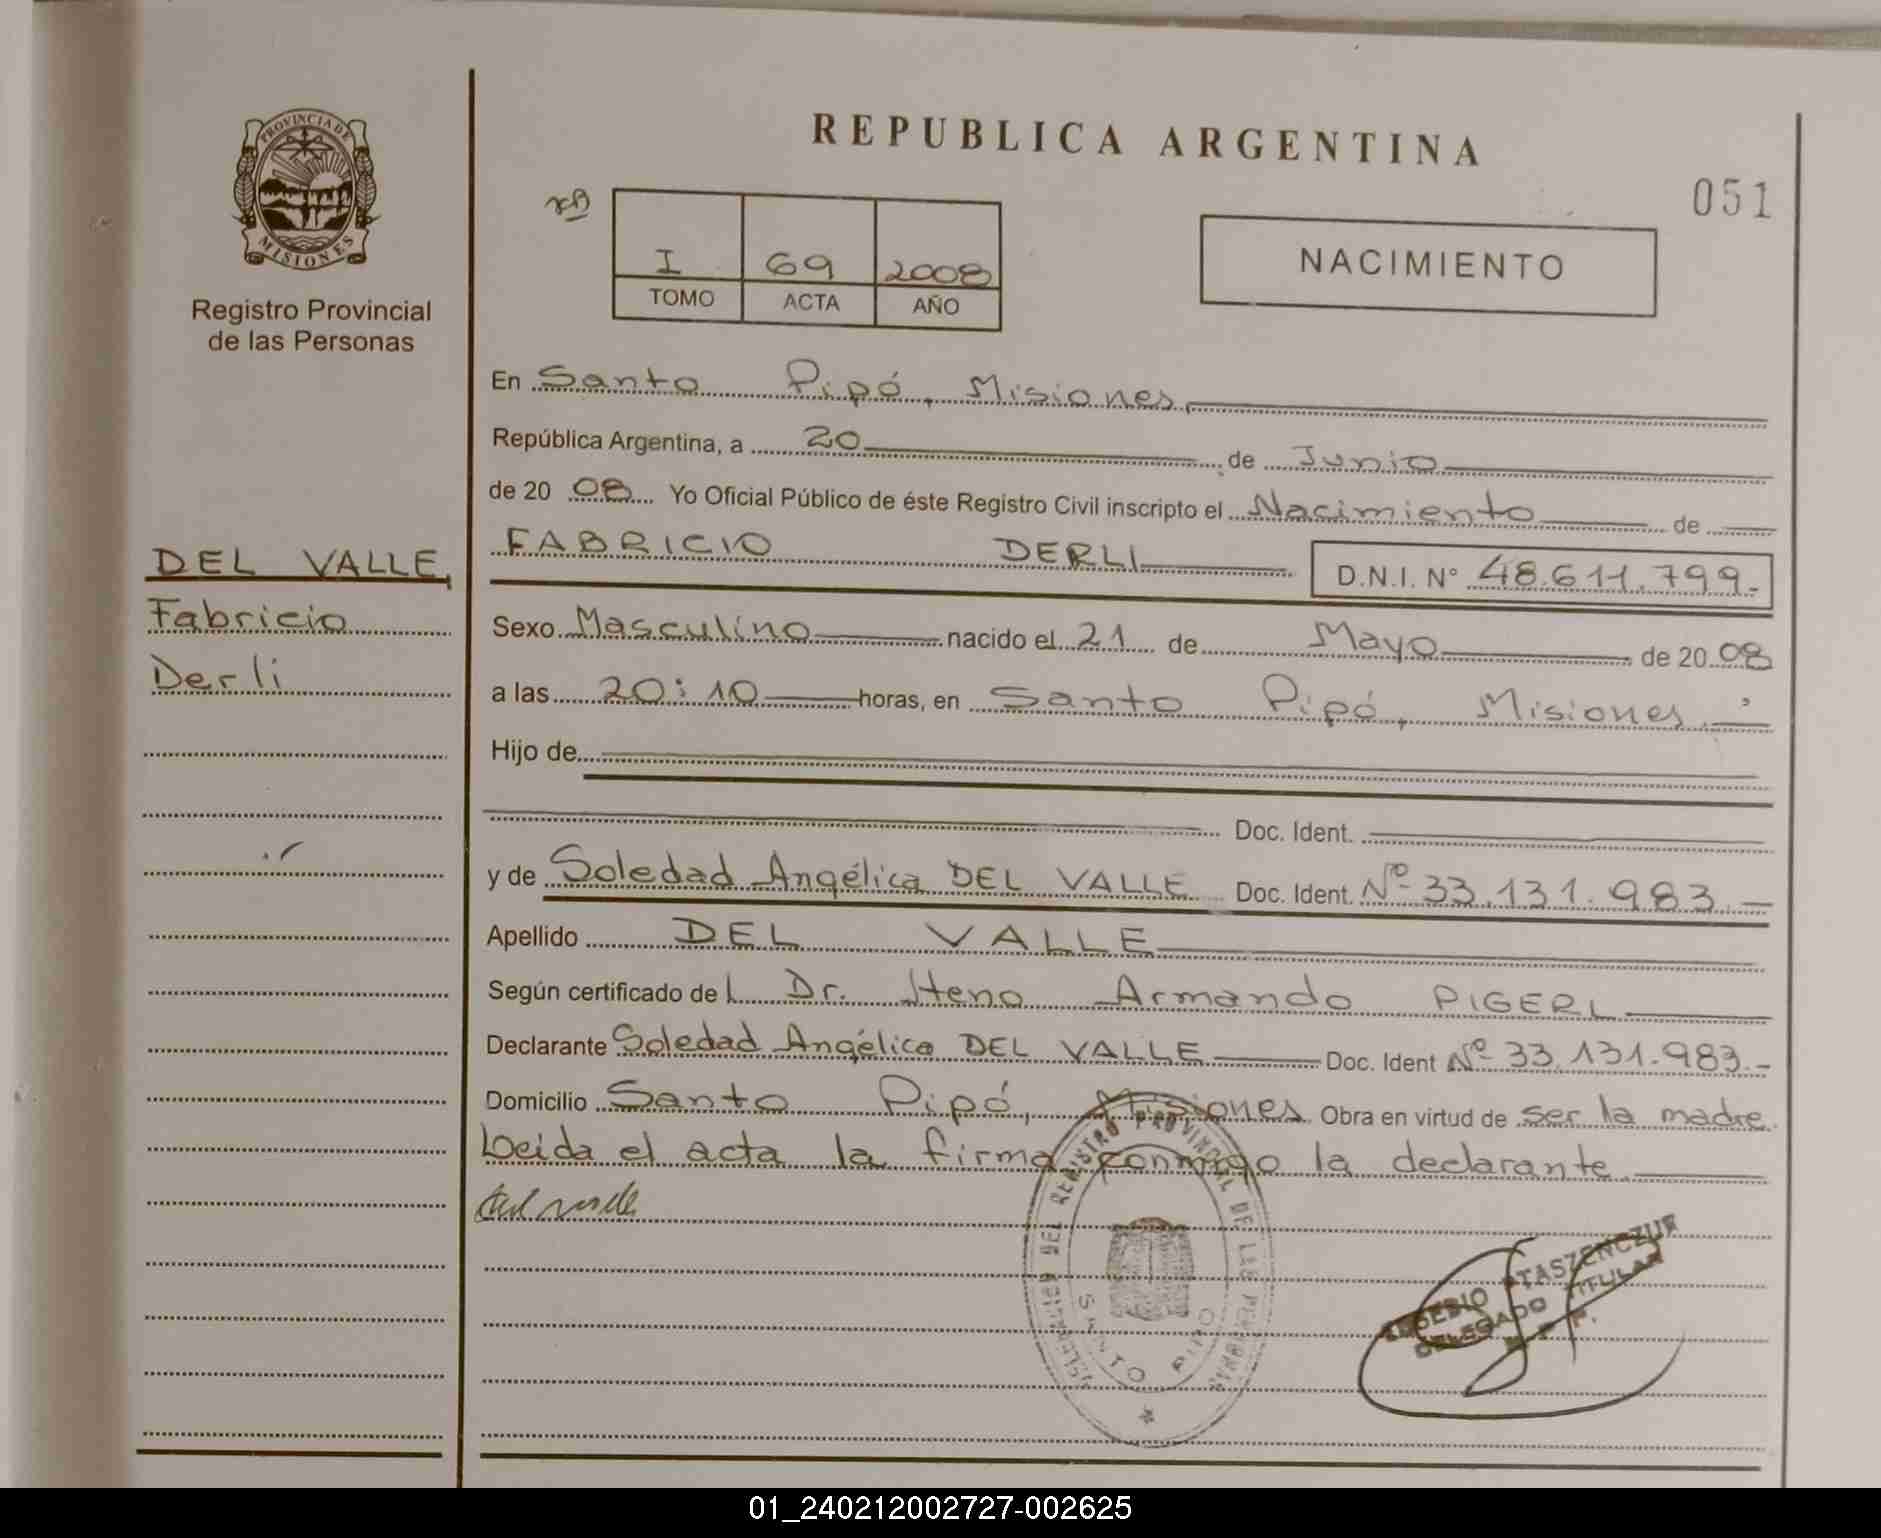 REPUBLICA ARGENTINA
051
PROVINCIA DE
MISIONES
Registro Provincial
de las Personas
I 69 2008
TOMO ACTA AÑO
NACIMIENTO
En Santo Pipó, Misiones,
República Argentina, a 20 de Junio
de 20 08 Yo Oficial Público de éste Registro Civil inscripto el Nacimiento de
FABRICIO DERLI D.N.I. Nº 48.611.799.-
DEL VALLE,
Fabricio
Derli
Sexo Masculino nacido el 21 de Mayo de 20 08
a las 20:10 horas, en Santo Pipó, Misiones.
Hijo de
Doc. Ident.
y de Soledad Angélica DEL VALLE Doc. Ident. Nº 33.131.983.-
Apellido DEL VALLE
Según certificado del Dr. Heno Armando PIGERL
Declarante Soledad Angélica DEL VALLE Doc. Ident Nº 33.131.983.-
Domicilio Santo Pipó, Misiones Obra en virtud de ser la madre.
Leida el acta la firma conmigo la declarante.
DELEGACION DEL REGISTRO PROVINCIAL DE LAS PERSONAS
SANTO PIPO
PTASZENCZUK
DELEGADO TITULAR
01_240212002727-002625